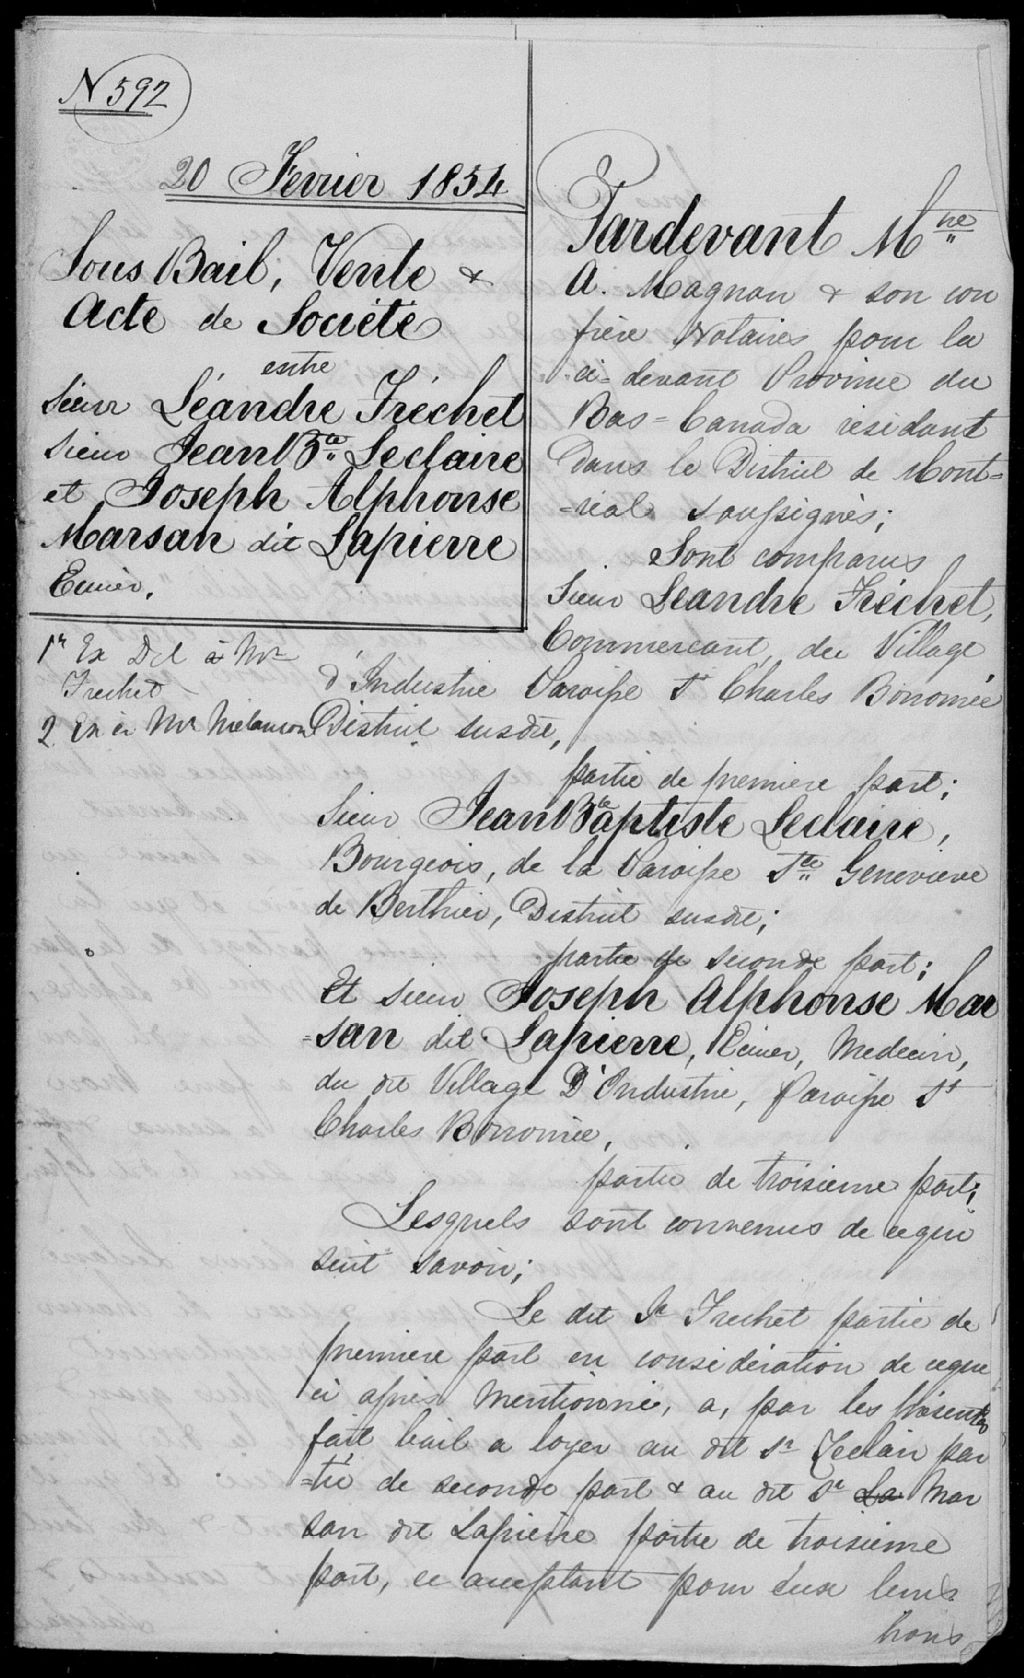 N 592
20 Fevrier 1854
Sous Bail, Vente &
Acte de Société
entre
Sieur Léandre Fréchet
Sieur Jean Bte Leclaire
et Joseph Alphonse
Marsan dit Lapierre
Ecuier.
1r Ex Del à Mr
Frechet
2 Ex à Mr Melancon
Pardevant Mtre
A. Magnan & son con
frère Notaires pour la
ci-devant Province du
Bas-Canada résidant
Dans le District de Mont=
=réal soussignés;
Sont comparus
Sieur Leandre Fréchet,
Commercant, du Village
d'Industrie Paroisse St Charles Boromée
District susdit,
partie de premiere part;
Sieur Jean Baptiste Leclaire,
Bourgeois, de la Paroisse Ste Genevieve
de Berthier, District susdit;
partie de seconde part;
Et sieur Joseph Alphonse Mar
=san dit Lapierre, Ecuier, Medecin,
du dit Village D'Industrie, Paroisse St
Charles Boromée,
partie de troisieme part;
Lesquels sont convenus de ce qui
suit savoir;
Le dit Sr Frechet partie de
premiere part en consideration de ce que
ci après mentionné, a, par les présentes
fait bail a loyer au dit Sr Leclair par
=tie de seconde part & au dit Sr La Mar
san dit Lapierre partie de troisieme
part, ce acceptant pour eux leurs
hoirs